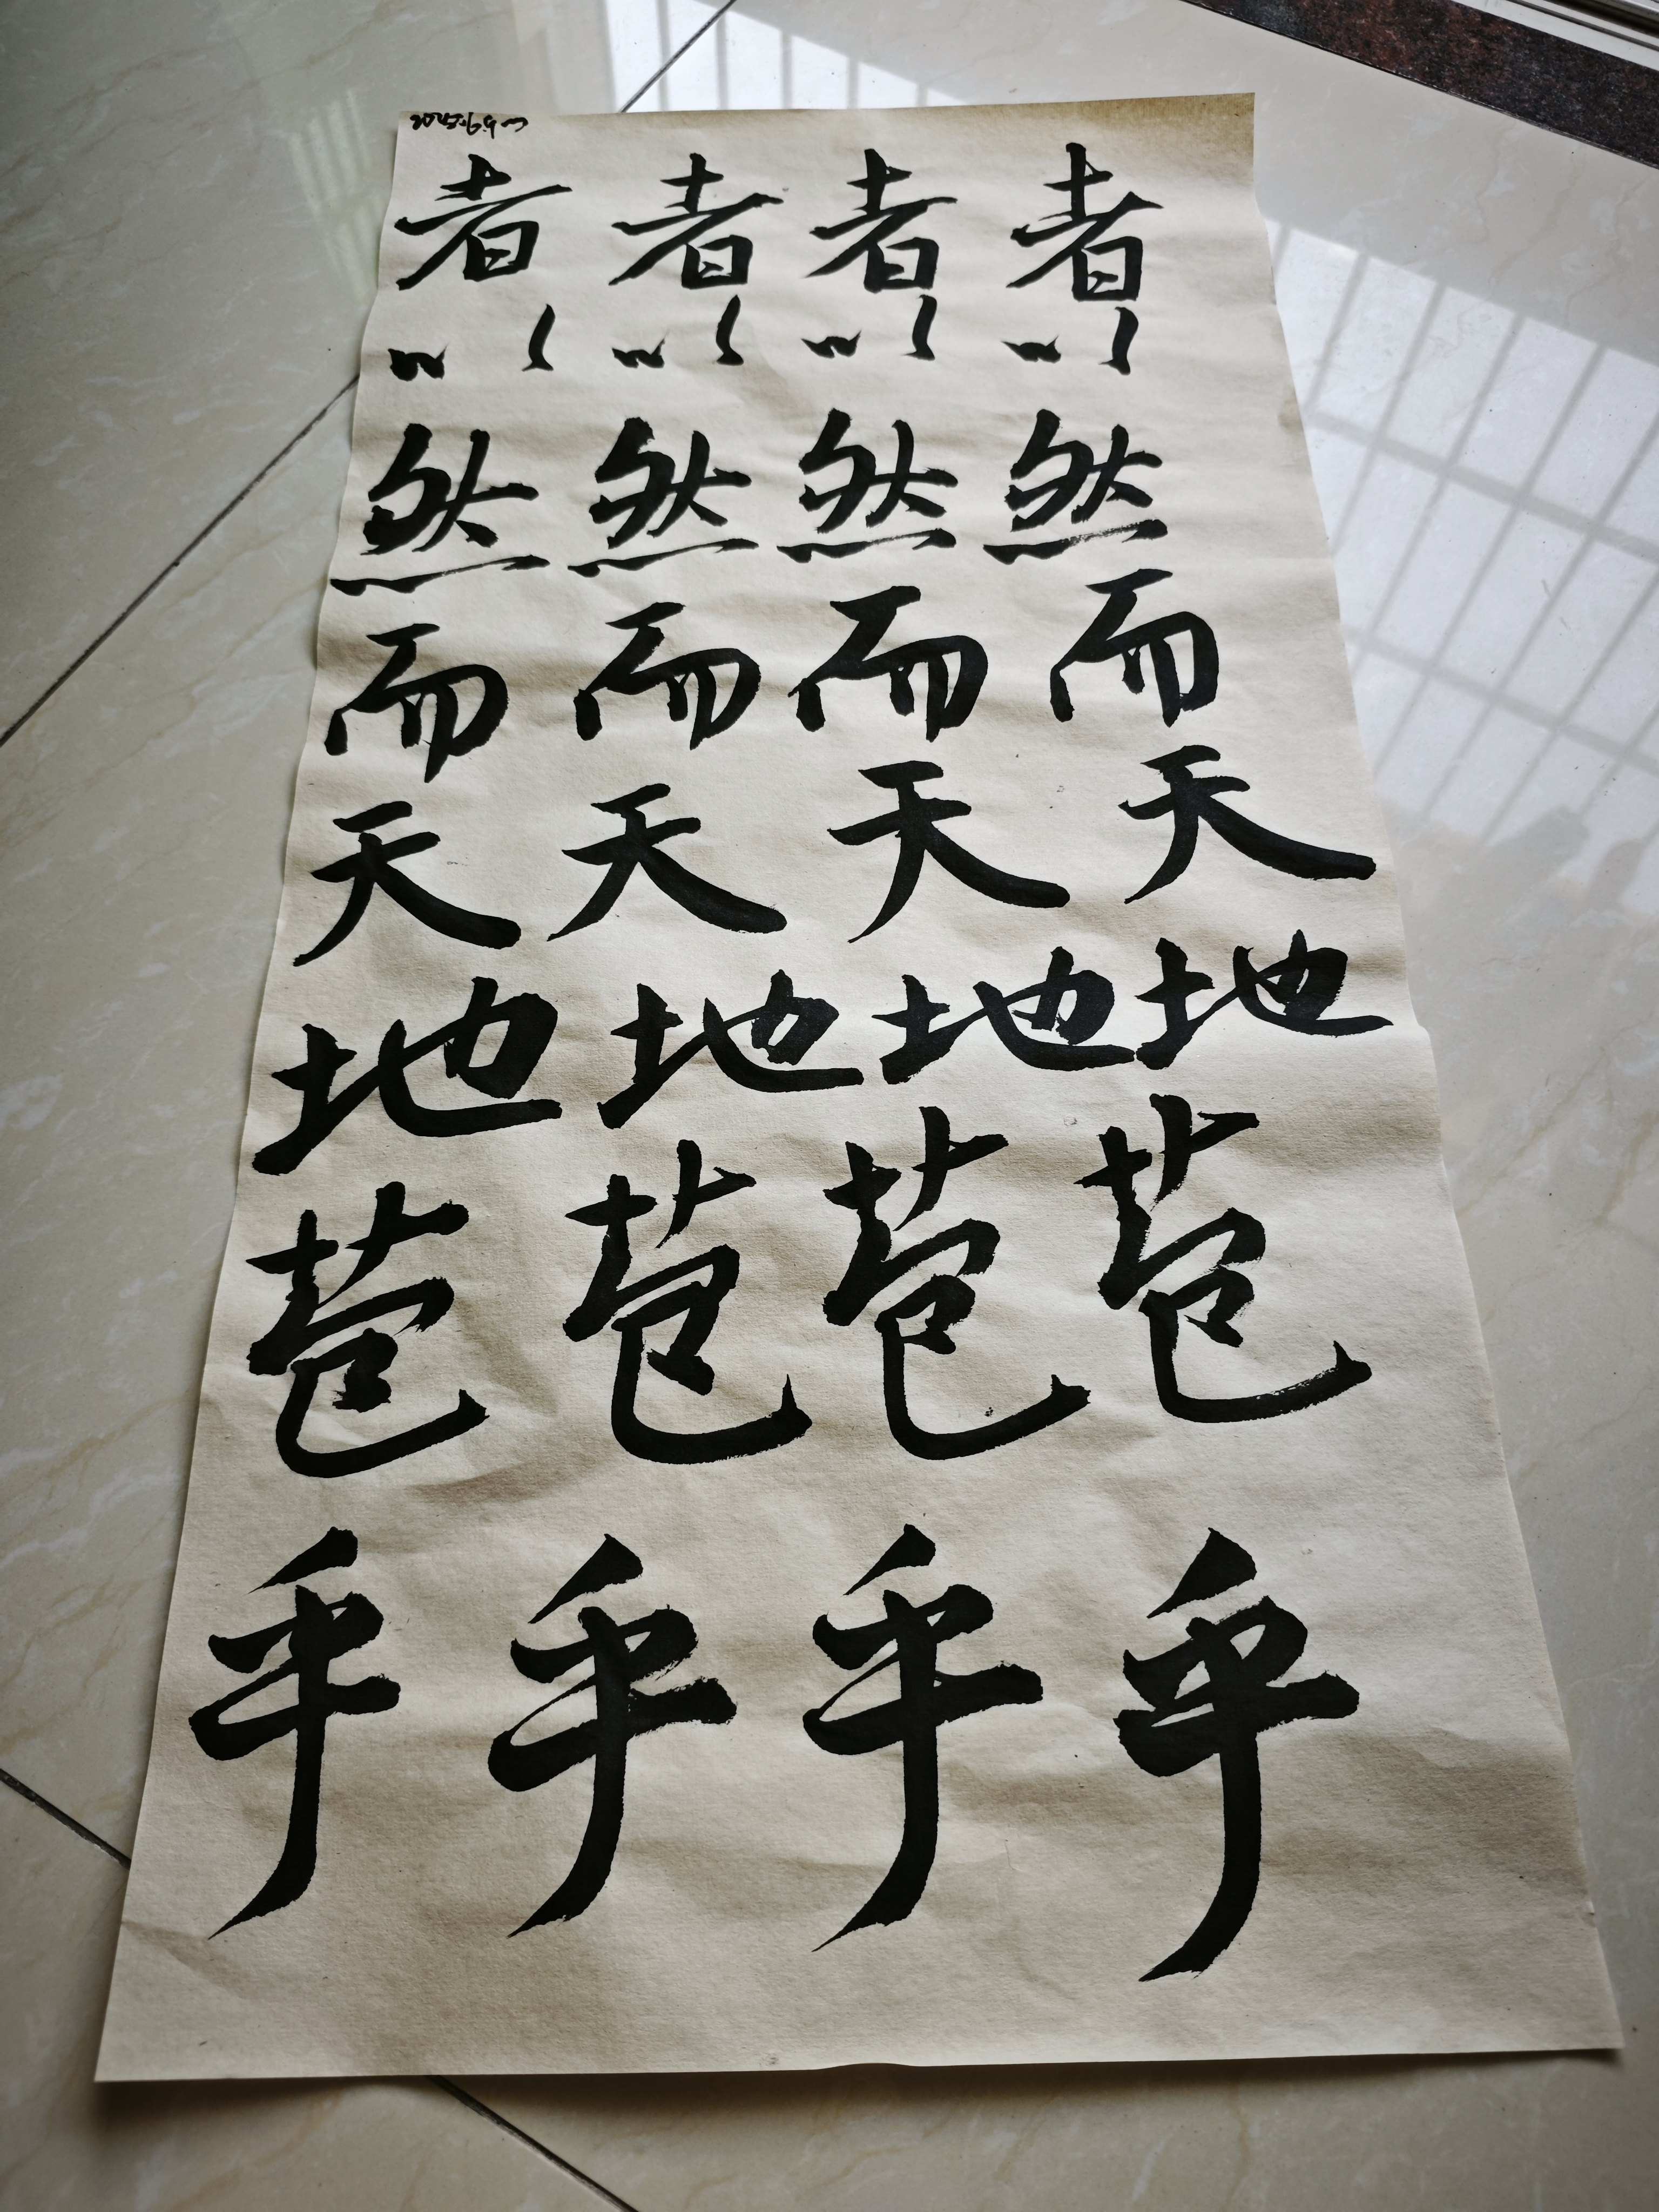 者以然而天地苞乎
者以然而天地苞乎
者以然而天地苞乎
者以然而天地苞乎